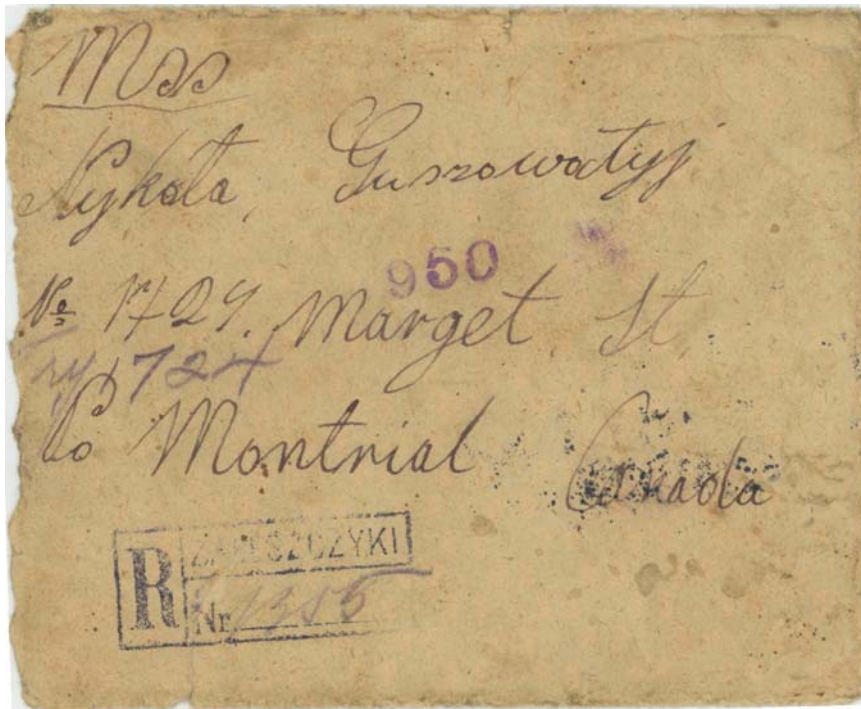 Mss
Nykola, Guszowatyj
950
No 1729. Marget St.
1724
Po Montrial Canada
R ZALESZCZYKI
Nr. 1355